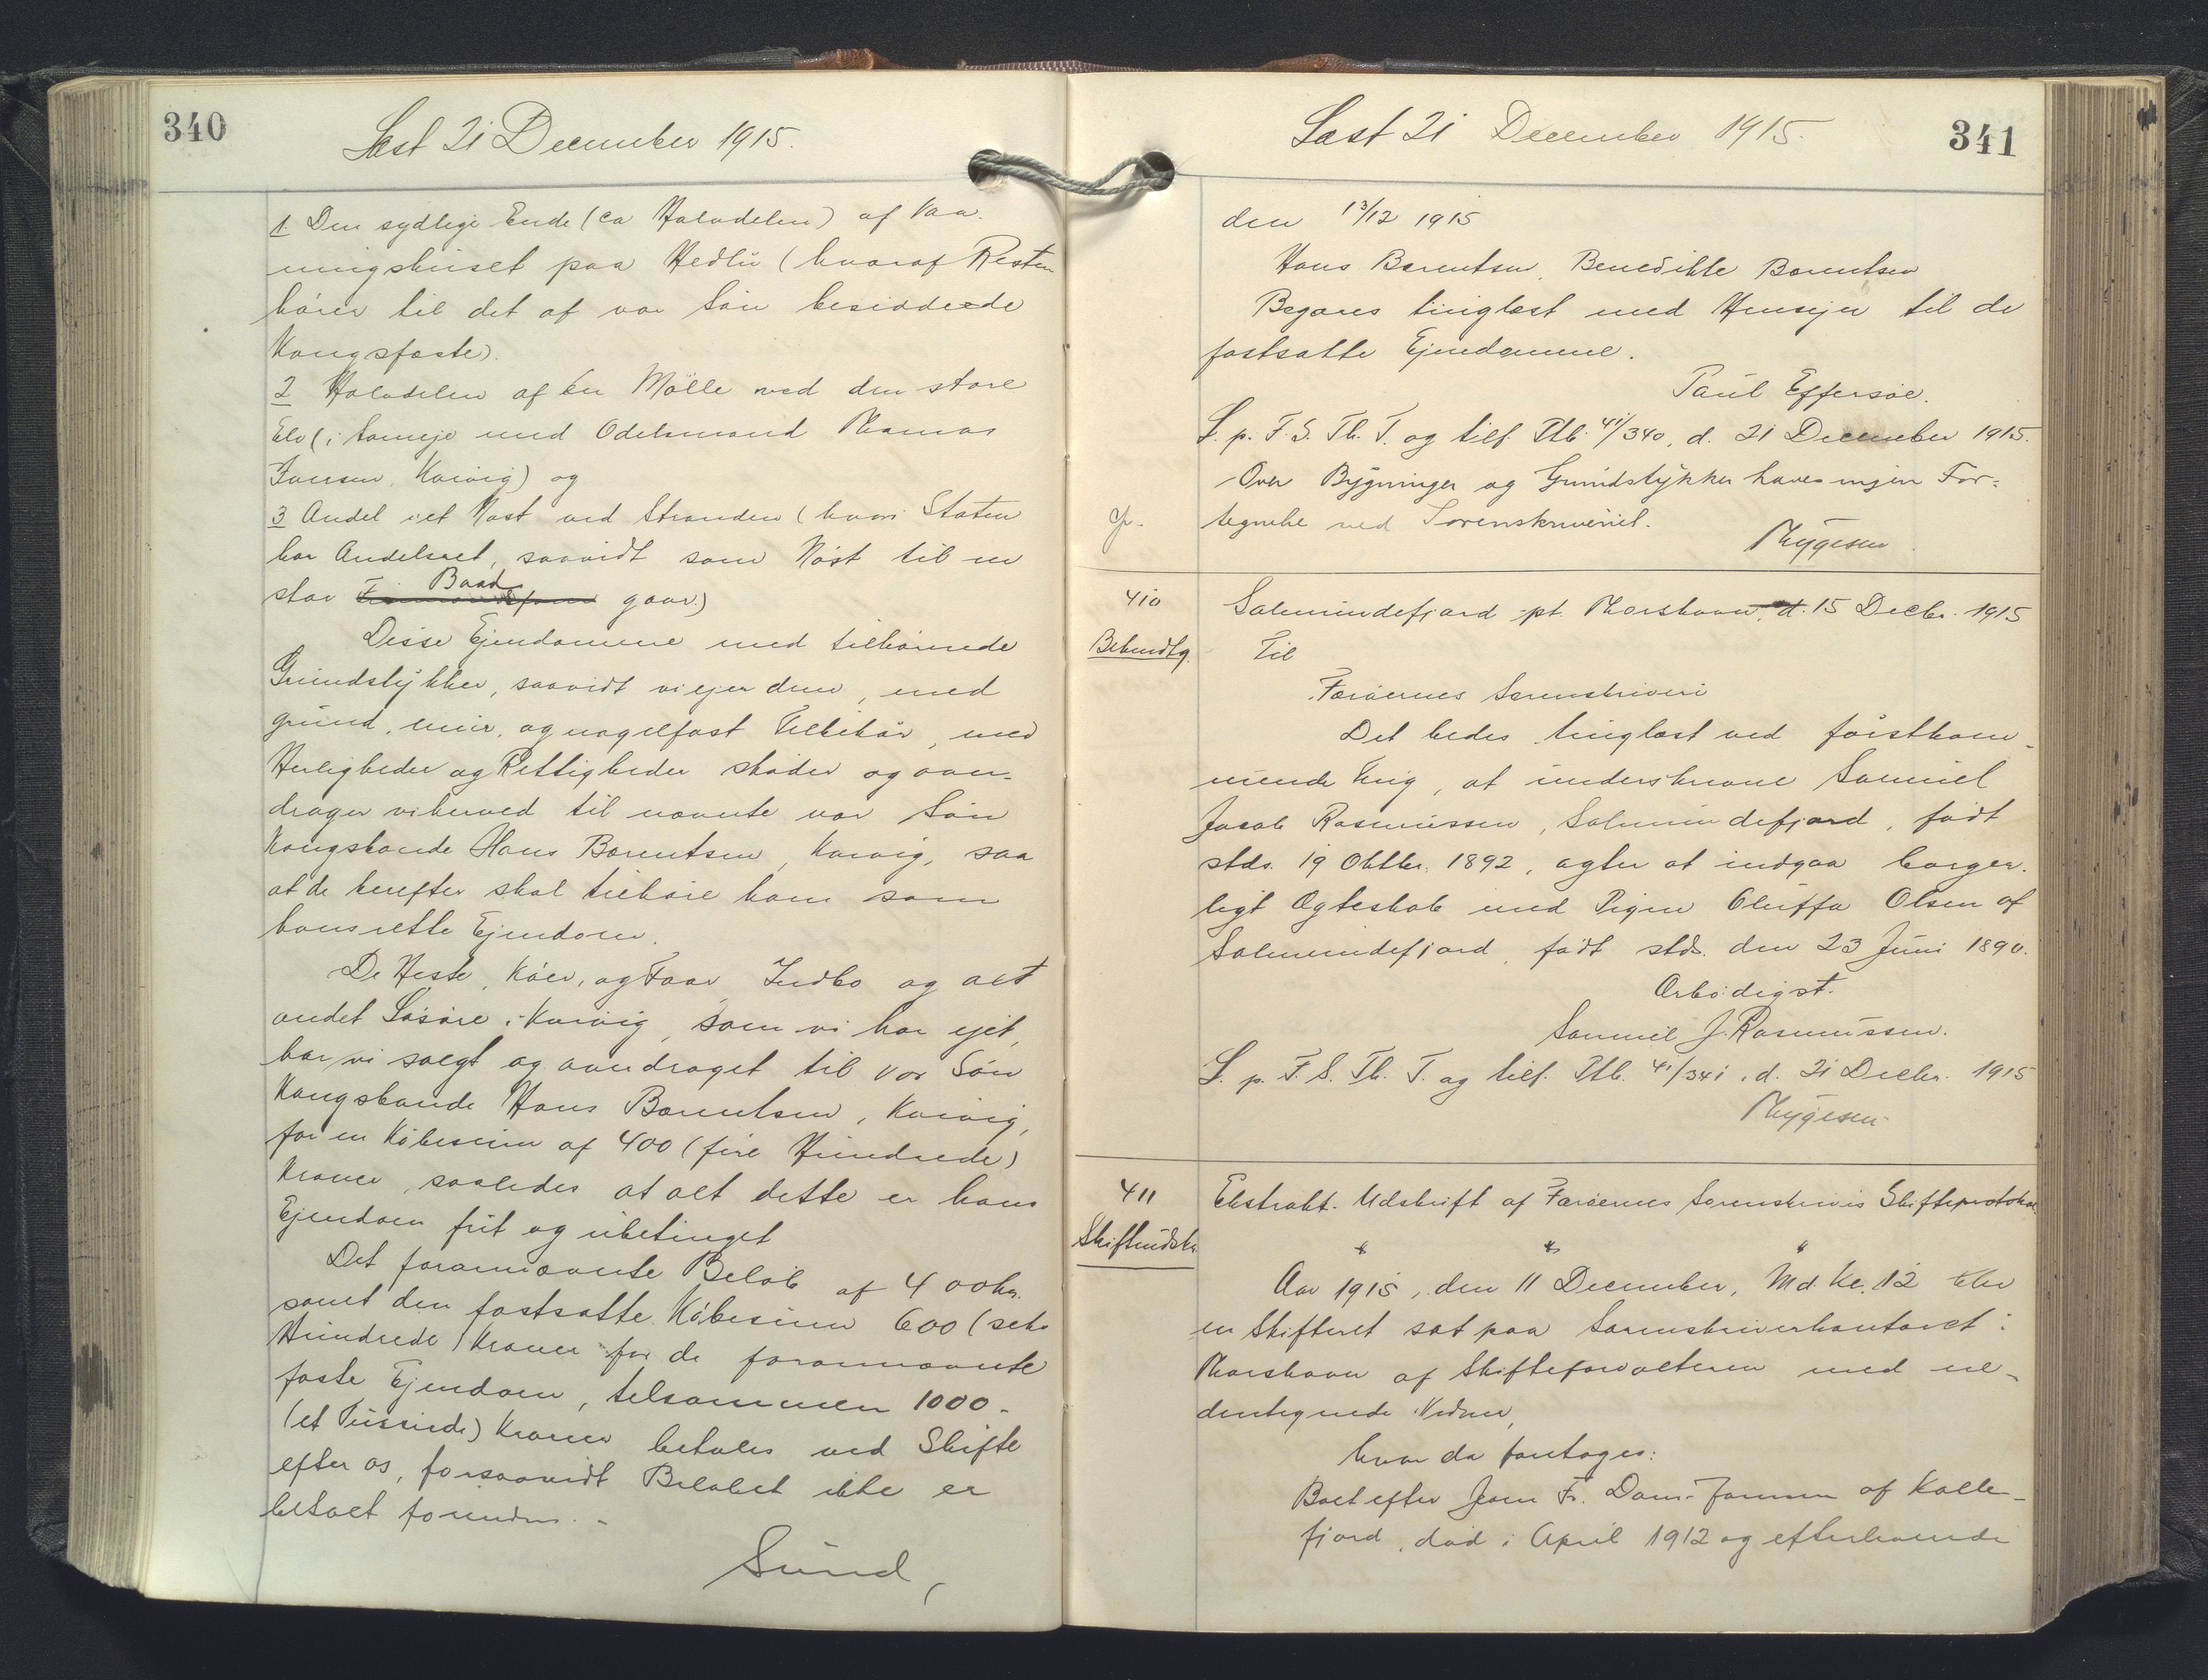 340
Læst 21 December 1915.
1 Den sydlige Ende (ca Halvdelen) af Vaa-
ningshuset paa Hedlu (hvoraf Resten
hører til det af vor Søn besiddede
Kongsfæste).
2 Halvdelen af en Mølle ved den store
Elv (i Sameje med Odelsmand Thomas
Joensen, Kvivig) og
3 Andel i et Nøst ved Stranden (hvori Staten
har Andelsret, saavidt som Nøst til en
stor Baad gaar.)
Disse Ejendomme med tilhørende
Grundstykker, saavidt vi ejer dem, med
grund, mur, og nagelfast Tilbehør, med
Herligheder og Rettigheder skøder og over-
drager vi herved til nævnte vor Søn
Kongsbonde Hans Barentsen, Kvivig, saa
at de herefter skal tilhøre ham som
hans rette Ejendom.
De Heste, Køer, og Faar, Indbo og alt
andet Løsøre i Kvivig, som vi har ejet,
har vi solgt og overdraget til vor Søn
Kongsbonde Hans Barentsen, Kvivig,
for en Købesum af 400 (fire Hundrede)
Kroner, saaledes at alt dette er hans
Ejendom frit og ubetinget
Det forannævnte Beløb af 400 kr.
samt den fastsatte Købesum 600 (seks
Hundrede) Kroner for de forannævnte
faste Ejendom, tilsammen 1000-
(et Tusinde) Kroner betales ved Skifte
efter os, forsaavidt Beløbet ikke er
betalt forinden. -
Sund,
Læst 21 December 1915.
341
den 13/12 1915
Hans Barentsen, Benedikte Barentsen
Begæres tinglæst med Hensyn til de
fastsatte Ejendomme.
Paul Effersøe.
L. p. F. S. Th. T. og tilf. Ptb. 41/340, d. 21 December 1915.
Over Bygninger og Grundstykker haves ingen For-
tegnelse ved Sorenskriveriet.
Thygesen
410
Bekendtg.
Salmundefjord pt. Thorshavn, d. 15 Decbr. 1915
Til
Færøernes Sorenskriveri
Det bedes tinglæst ved førstkom-
mende Ting, at underskrevne Samuel
Jacob Rasmussen, Salmundefjord, født
stds. 19 Oktbr. 1892, agter at indgaa borger-
ligt Ægteskab med Pigen Oluffa Olsen af
Salmundefjord, født stds. den 23 Juni 1890.
Ærbødigst.
Samuel J. Rasmussen.
L. p. F. S. Th. T. og tilf. Ptb. 41/341, d. 21 Decbr. 1915
Thygesen
411
Skifteudskr.
Ekstrakt-Udskrift af Færøernes Sorenskrivers Skifteprotokol
Aar 1915, den 11 December, Md. Kl. 12 blev
en Skifteret sat paa Sorenskriverkontoret i
Thorshavn af Skifteforvalteren med ne-
dentegnede Vidner,
hvor da foretoges:
Boet efter Joen Fr. Dam-Jansen af Kolle-
fjord, død i April 1912 og efterlevende